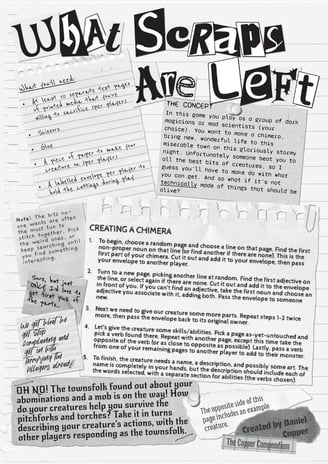 What Scraps
Are Left
What you'll need:
• At least 10 separate text pages
of printed media that you're
willing to sacrifice (per player)
• Scissors
• Glue
• A piece of paper to make your
creature on (per player)
• A labelled envelope per player to
hold the cuttings during play
THE CONCEPT
In this game you play as a group of dark
magicians or mad scientists (your
choice). You want to make a chimera,
bring new, wonderful life to this
mortal plane on this gloriously stormy
night. Unfortunately someone beat you to
all the best bits of creatures, so I
guess you'll have to make do with what
you can get. And so what if it's not
technically made of things that should be
alive?
Note: The bits no-
one wants are often
the most fun to
stitch together. Pick
the weird ones, or
keep searching until
you find something
interesting.
CREATING A CHIMERA
1. To begin, choose a random page and choose a line on that page. Find the first
non-proper noun on that line (or find another if there are none). This is the
first part of your chimera. Cut it out and add it to your envelope, then pass
your envelope to another player.
2. Turn to a new page, picking another line at random. Find the first adjective on
the line, or select again if there are none. Cut it out and add it to the envelope
in front of you. If you can't find an adjective, take the first noun and choose an
adjective you associate with it, adding both. Pass the envelope to someone
new.
3. Next we need to give our creature some more parts. Repeat steps 1-2 twice
more, then pass the envelope back to its original owner.
4. Let's give the creature some skills/abilities. Pick a page as-yet-untouched and
pick a verb found there. Repeat with another page, except this time take the
opposite of the verb (or as close to opposite as possible). Lastly, pass a verb
from one of your remaining pages to another player to add to their monster.
5. To finish, the creature needs a name, a description, and possibly some art. The
name is completely in your hands, but the description should include each of
the words selected, with a separate section for abilities (the verbs chosen).
OH NO! The townsfolk found out about your
abominations and a mob is on the way! How
do your creatures help you survive the
pitchforks and torches? Take it in turns
describing your creature's actions, with the
other players responding as the townsfolk.
The opposite side of this
page includes an example
creature.
Created by Daniel
Copper
The Copper Compendium